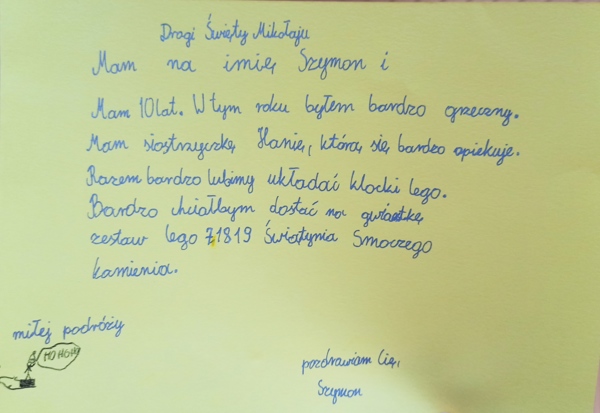 Drogi Święty Mikołaju
Mam na imię Szymon i
Mam 10 lat. W tym roku byłem bardzo grzeczny.
Mam siostrzyczkę Hanię, którą się bardzo opiekuje.
Razem bardzo lubimy układać klocki lego.
Bardzo chciałbym dostać na gwiastkę
zestaw lego 71819 Świątynia Smoczego
kamienia.
miłej podróży
HO HO HO
pozdrawiam Cię,
Szymon